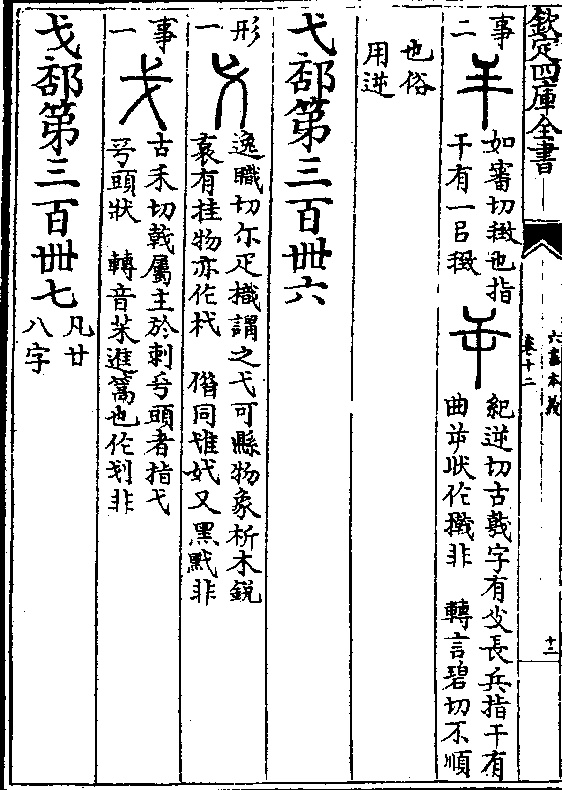 欽定四庫全書
六書本義
卷十二
十二
事
二
如審切㨒也指
干有一㠯㨒
紀逆切古戟字有㚘長兵指干有
曲屰狀作撠非　轉言碧切不順
也俗
用逆
弋部第三百卌六
形
一
逸職切尔疋樴謂之弋可縣物象析木銳
衺有挂物亦作杙　借同雉妷又黑黓非
事
一
古禾切戟屬主於刺㢧頭者指弋
㢧頭狀　轉音茱進篙也作划非
戈部第三百卌七
凡廿
八字